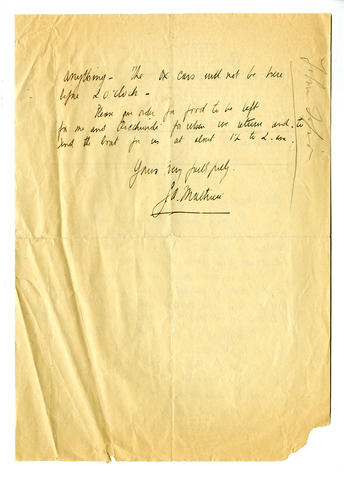 anything - The ox cars will not be here
before 2 o'clock -
Please give order for food to be left
for me and for when we return and to
send the boat for us at about 12 to 2 am.
Yours very faithfully